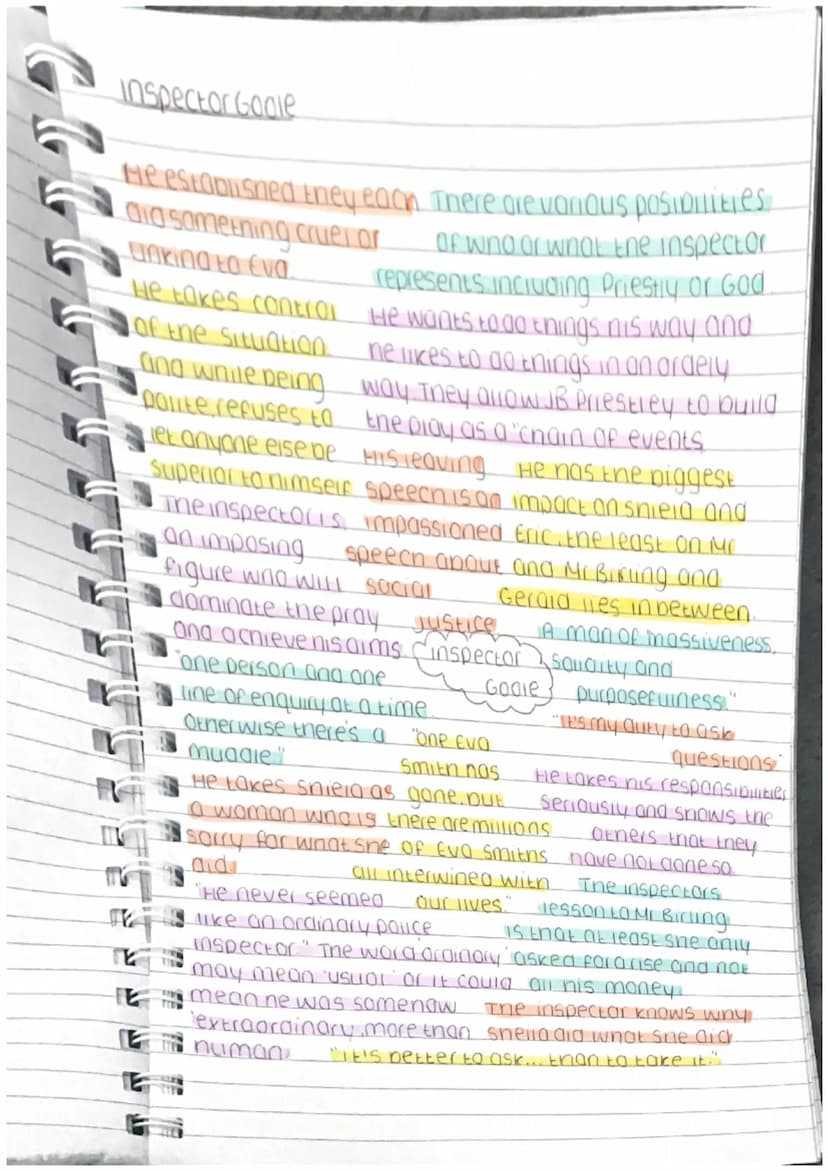 Inspector Goole
He established they each
did something cruel or
unkind to Eva.
There are various posibilities
of who or what the inspector
represents including Priestly or God.
He takes control
of the situation
and while being
polite refuses to
let anyone else be
superior to himself
He wants to do things his way and
he likes to do things in an ordely
way. They allow JB Priestley to build
the play as a "chain of events
His leaving
speech is an
impassioned
speech about
social
justice
He has the biggest
impact on shield and
Eric, the least on Mr
and Mr Birling and
Gerald lies in between.
The inspector is
an imposing
figure who will
dominate the pray
and achieve his aims
inspector
Goole
A man of massiveness,
solidity and
purposefulness."
"one person and one
line of enquiry at a time.
Otherwise there's a
muddle."
"It's my duty to ask
questions"
"one Eva
Smith has
gone, but
there are millions
of Eva Smiths
all intertwined with
our lives."
He takes his responsibilities
seriously and shows the
others that they
have not done so
He takes Shiela as
a woman who is
sorry for what she
did.
The inspectors
lesson to Mr Birling
is that at least she only
asked for a rise and not
all his money
"He never seemed
like an ordinary police
inspector." The word 'ordinary'
may mean 'usual' or it could
mean he was somehow
'extraordinary, more than
human.
The inspector knows why
Sheila did what she did
"it's better to ask... than to take it."